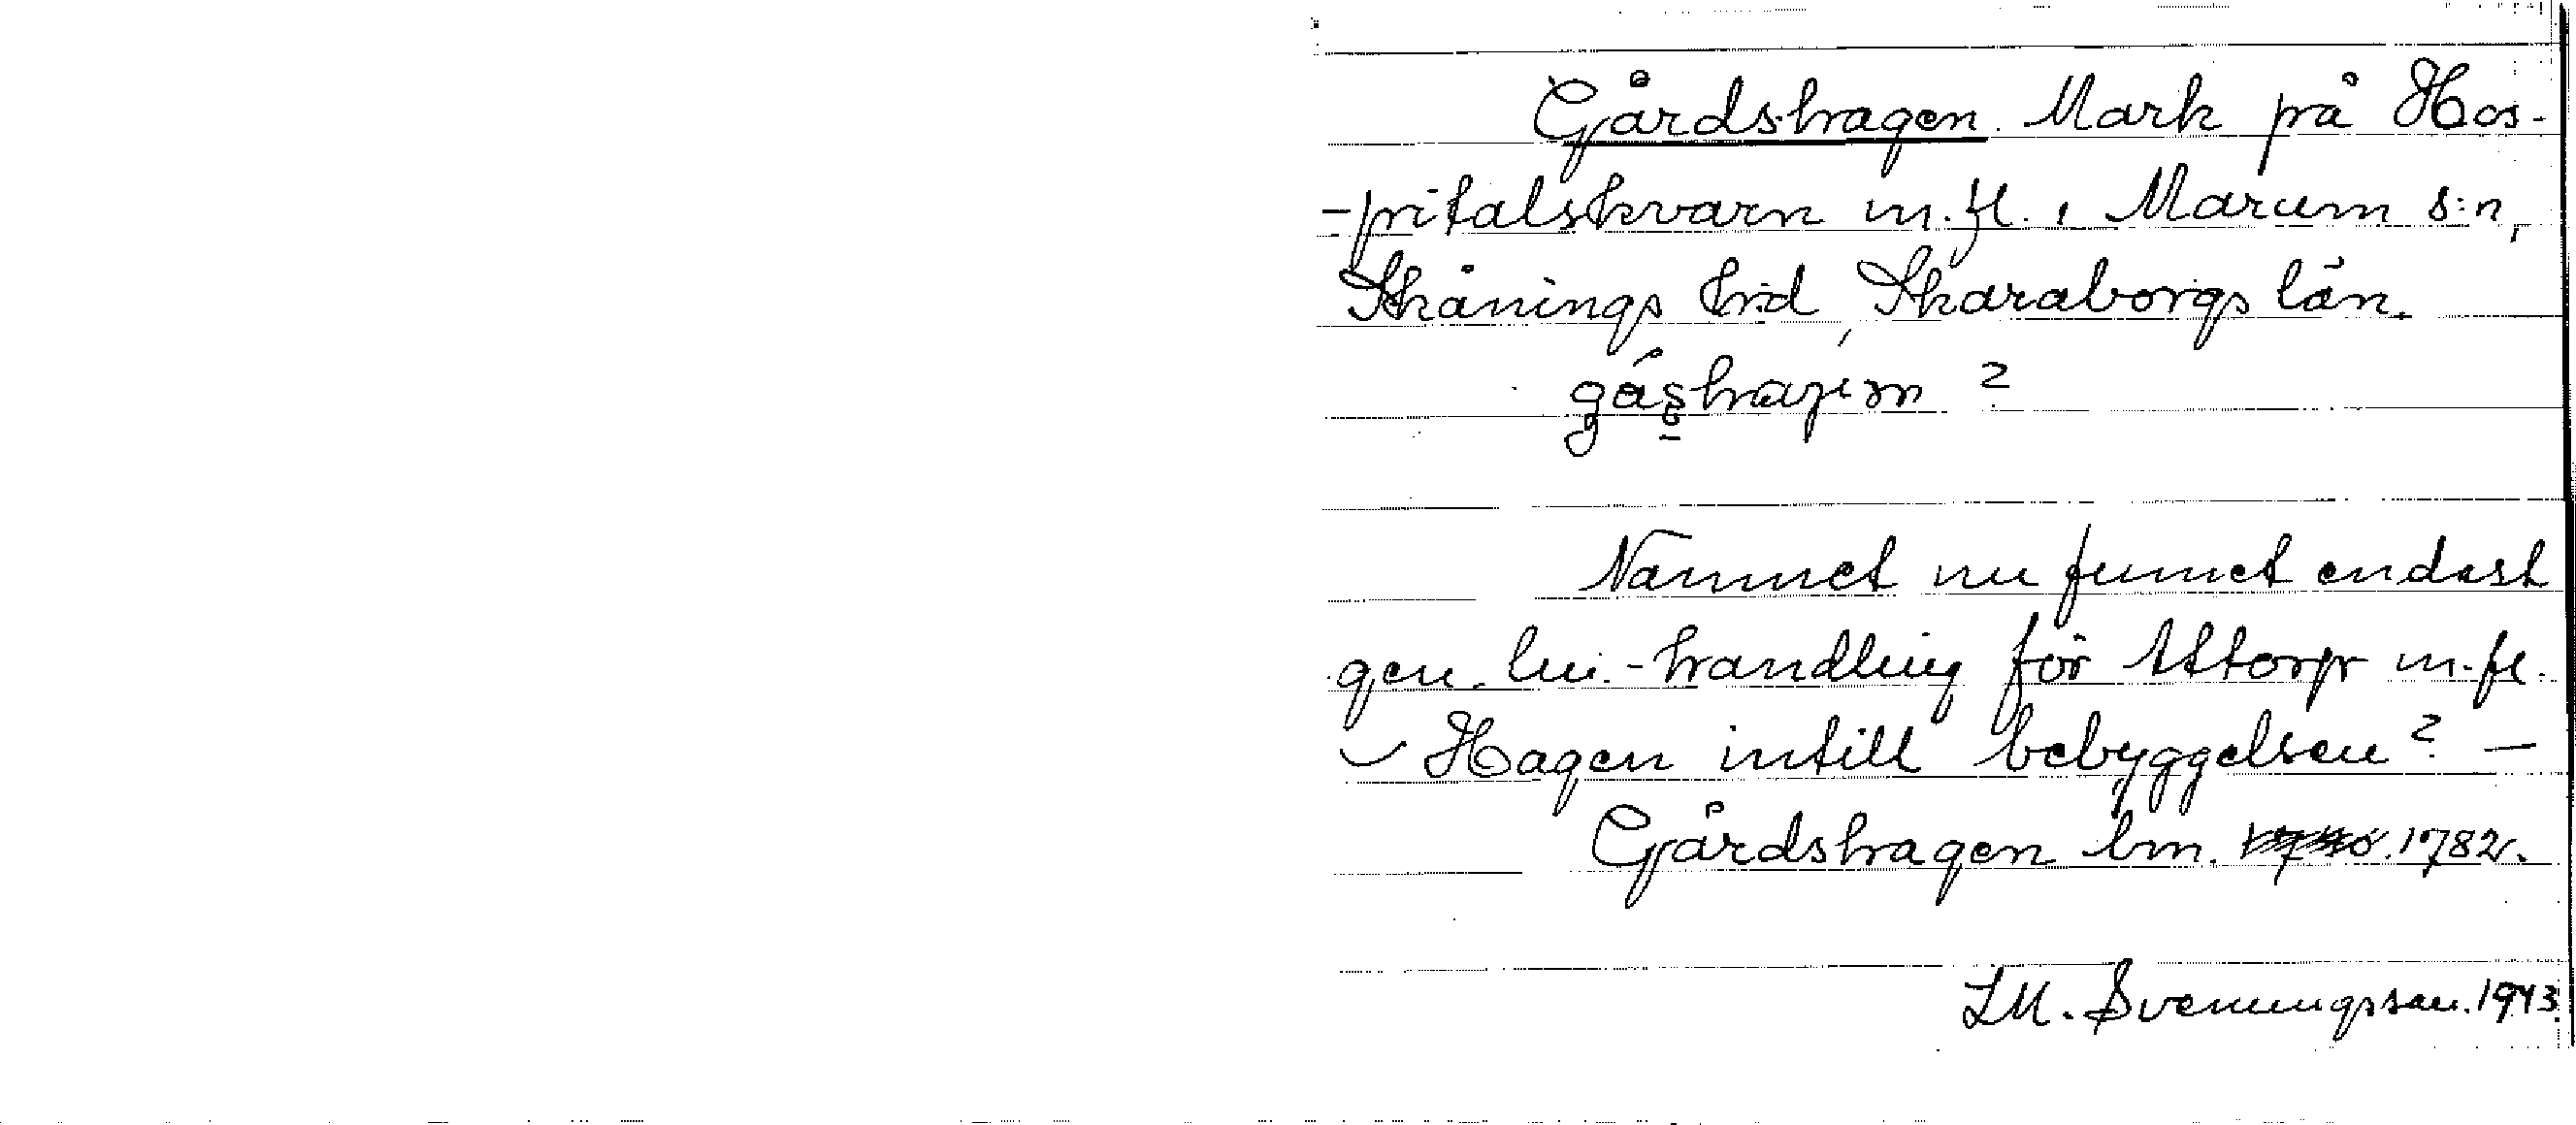 Gårdshagen. Mark på Hos-
-pitalskvarn m.fl., Marum s:n,
Skånings hd, Skaraborgs län.
gáshaʒən ?
Namnet nu funnet endast
gen. lm.-handling för Attorp m.fl.
Hagen intill bebyggelsen? —
Gårdshagen lm. 1782.
LM. Svenungsson. 1943.